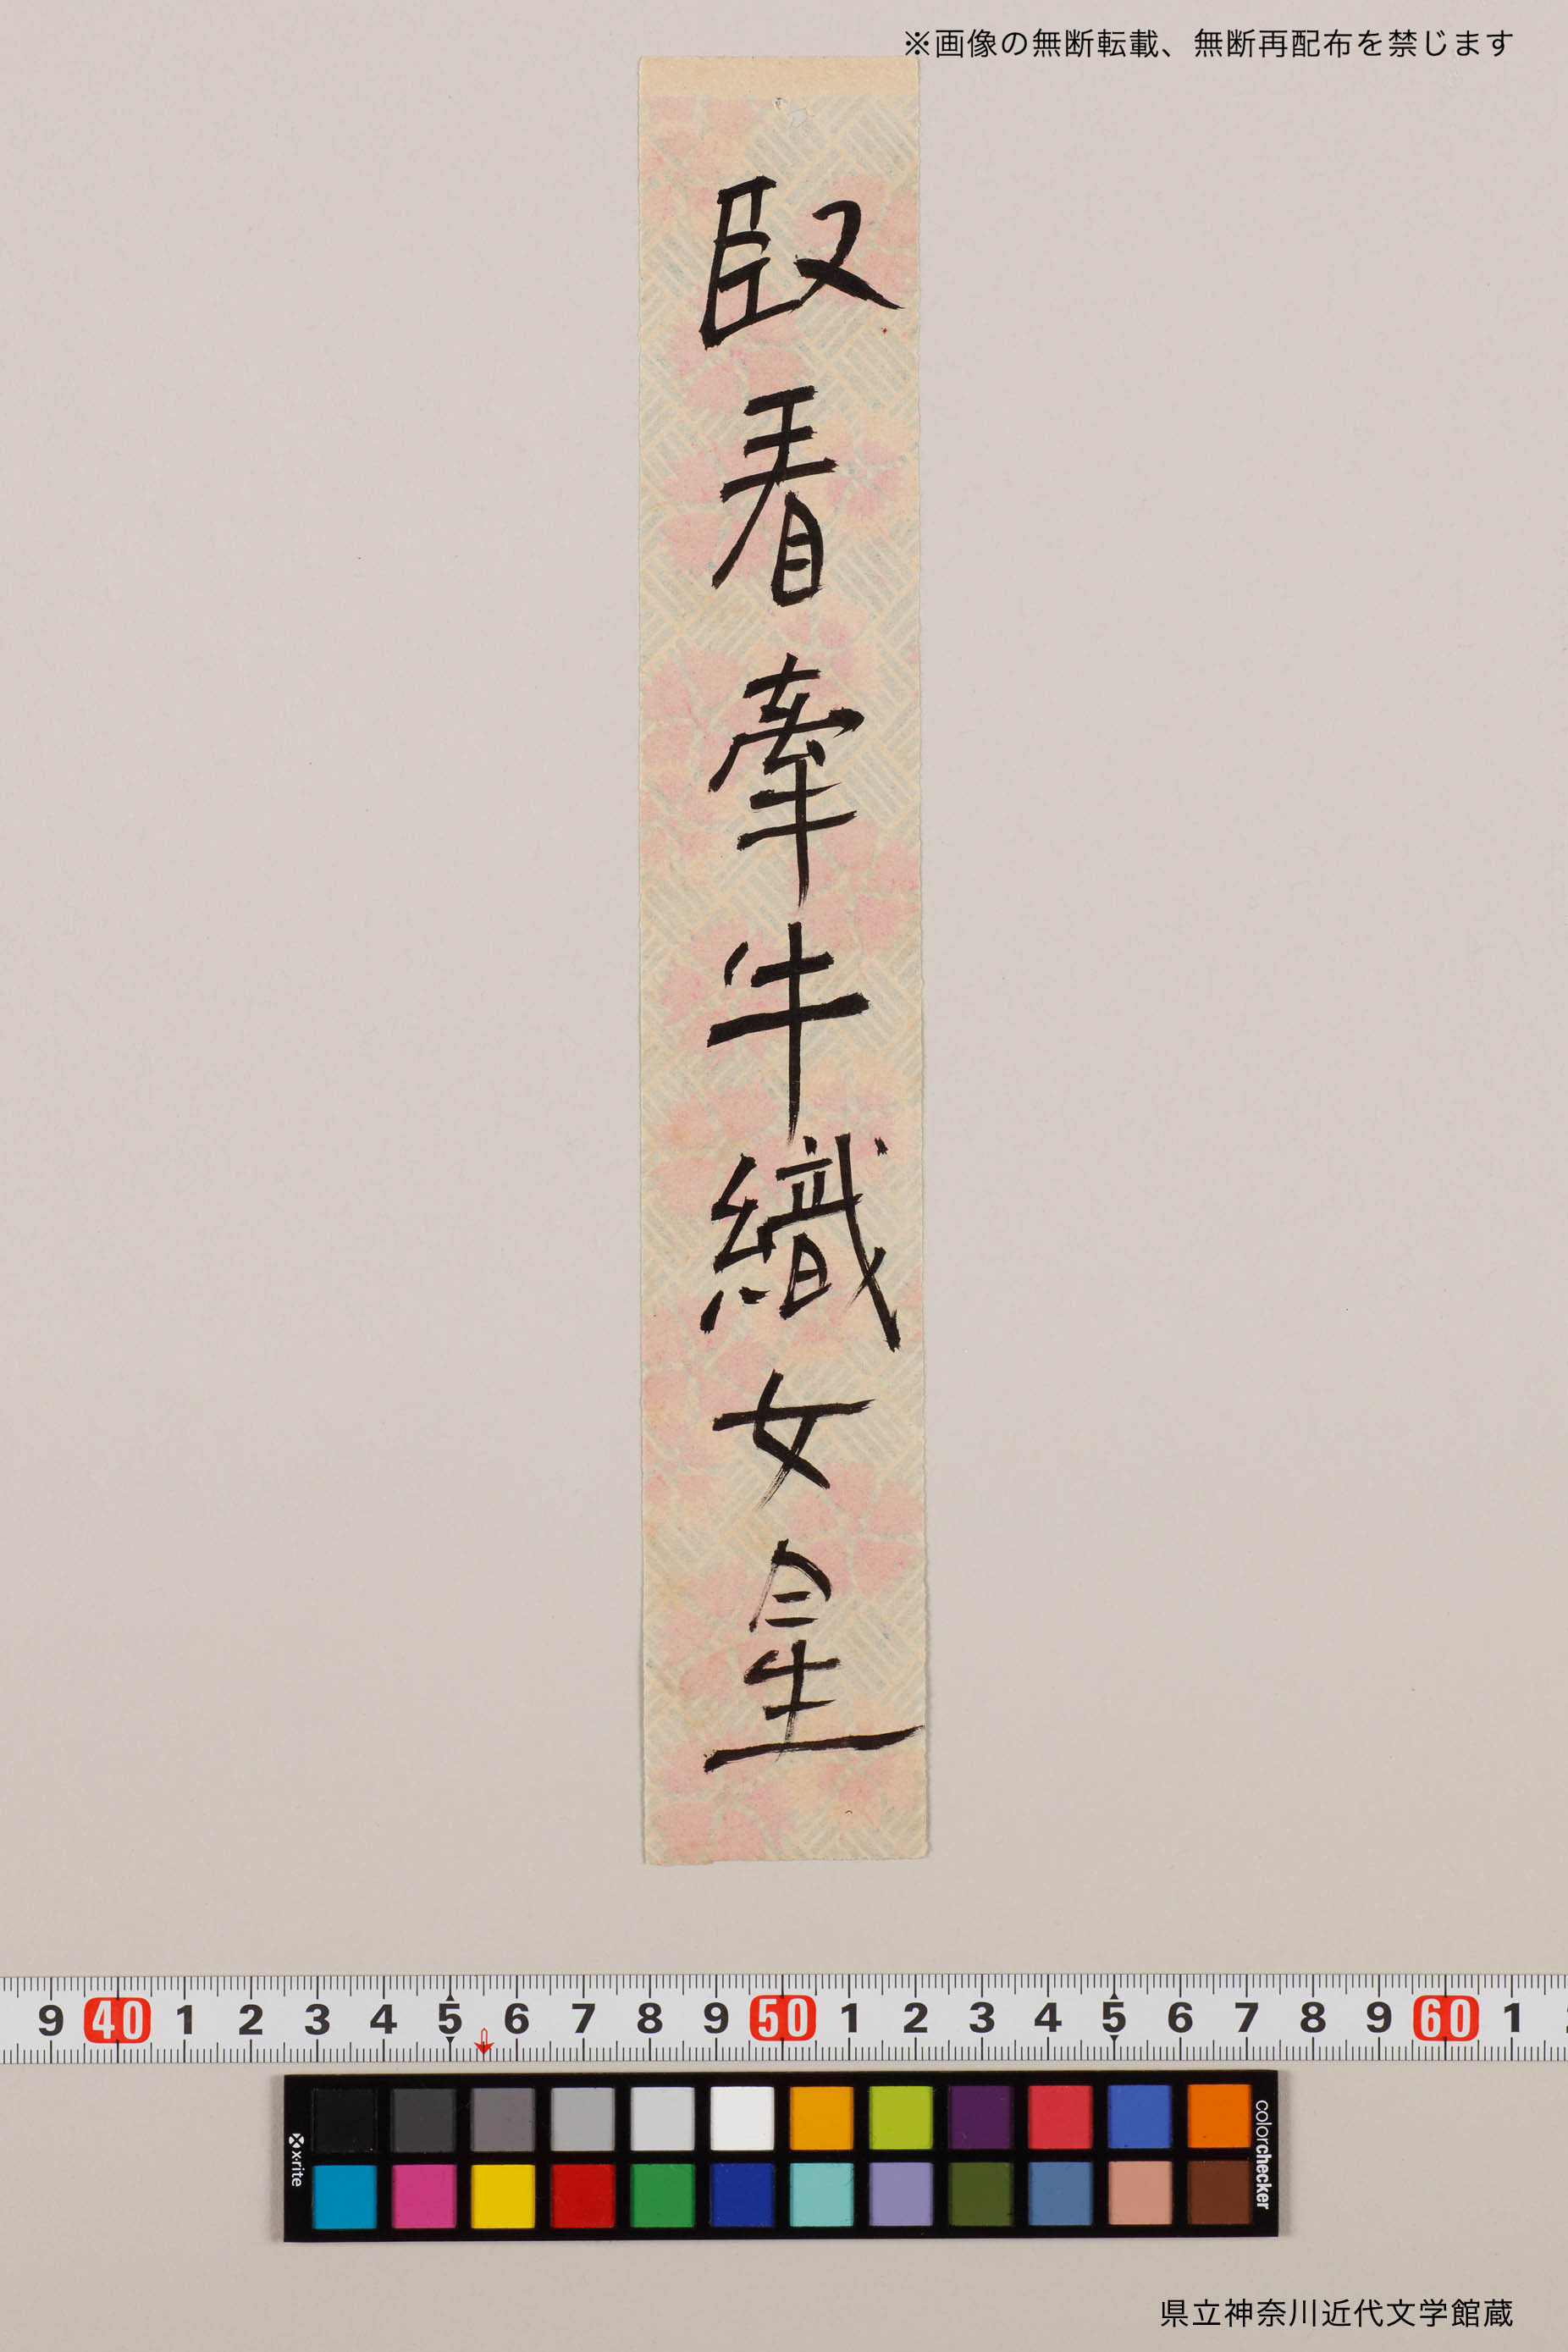 ※画像の無断転載、無断再配布を禁じます
臥看牽牛織女星
9 40 1 2 3 4 5 6 7 8 9 50 1 2 3 4 5 6 7 8 9 60 1
x-rite
colorchecker
県立神奈川近代文学館蔵